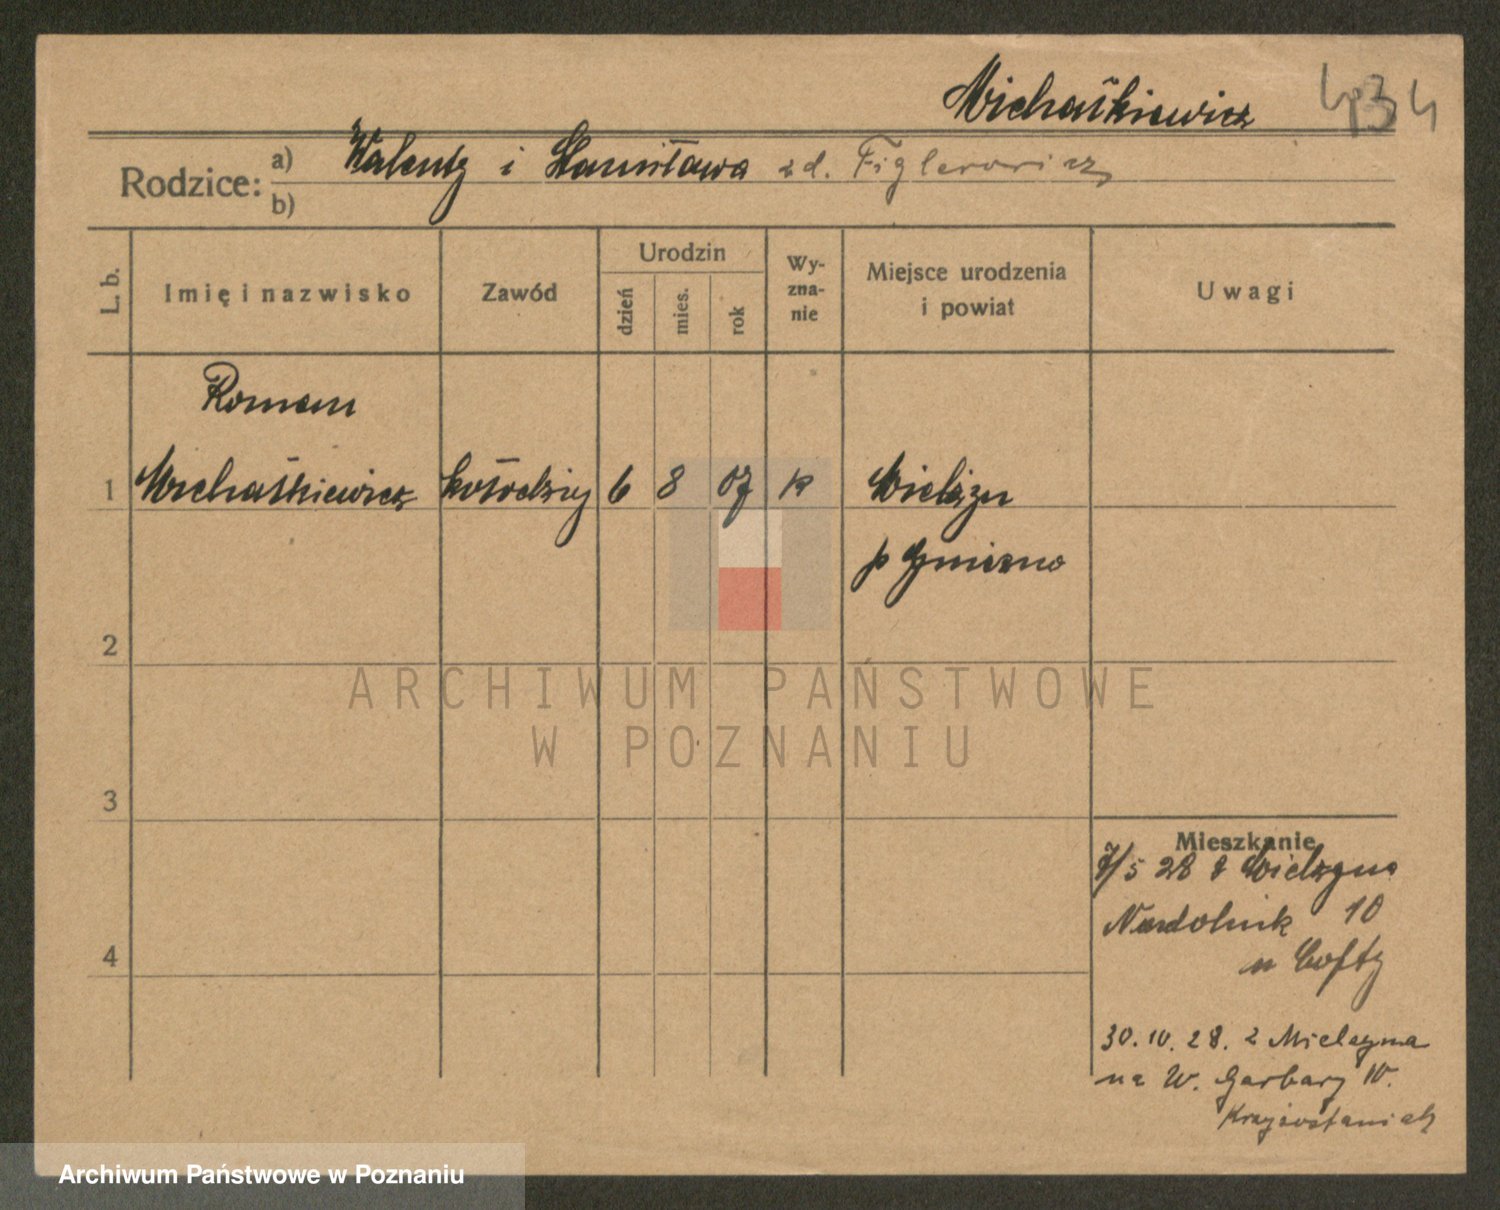 Michaśkiewicz 434
Rodzice: a) Walenty i Stanisława zd. Figlerowicz
b)
L. b. Imię i nazwisko Zawód Urodzin dzień mies. rok Wy-zna-nie Miejsce urodzenia i powiat Uwagi
Roman
1 Michaśkiewicz kołodziej 6 8 07 k Mielżyn
p Gniezno
2
ARCHIWUM PAŃSTWOWE
W POZNANIU
3
Mieszkanie
7/5 28 z Mielżyna
10
4
30.10.28. z Mielżyna
na W. Garbary 10.
Archiwum Państwowe w Poznaniu